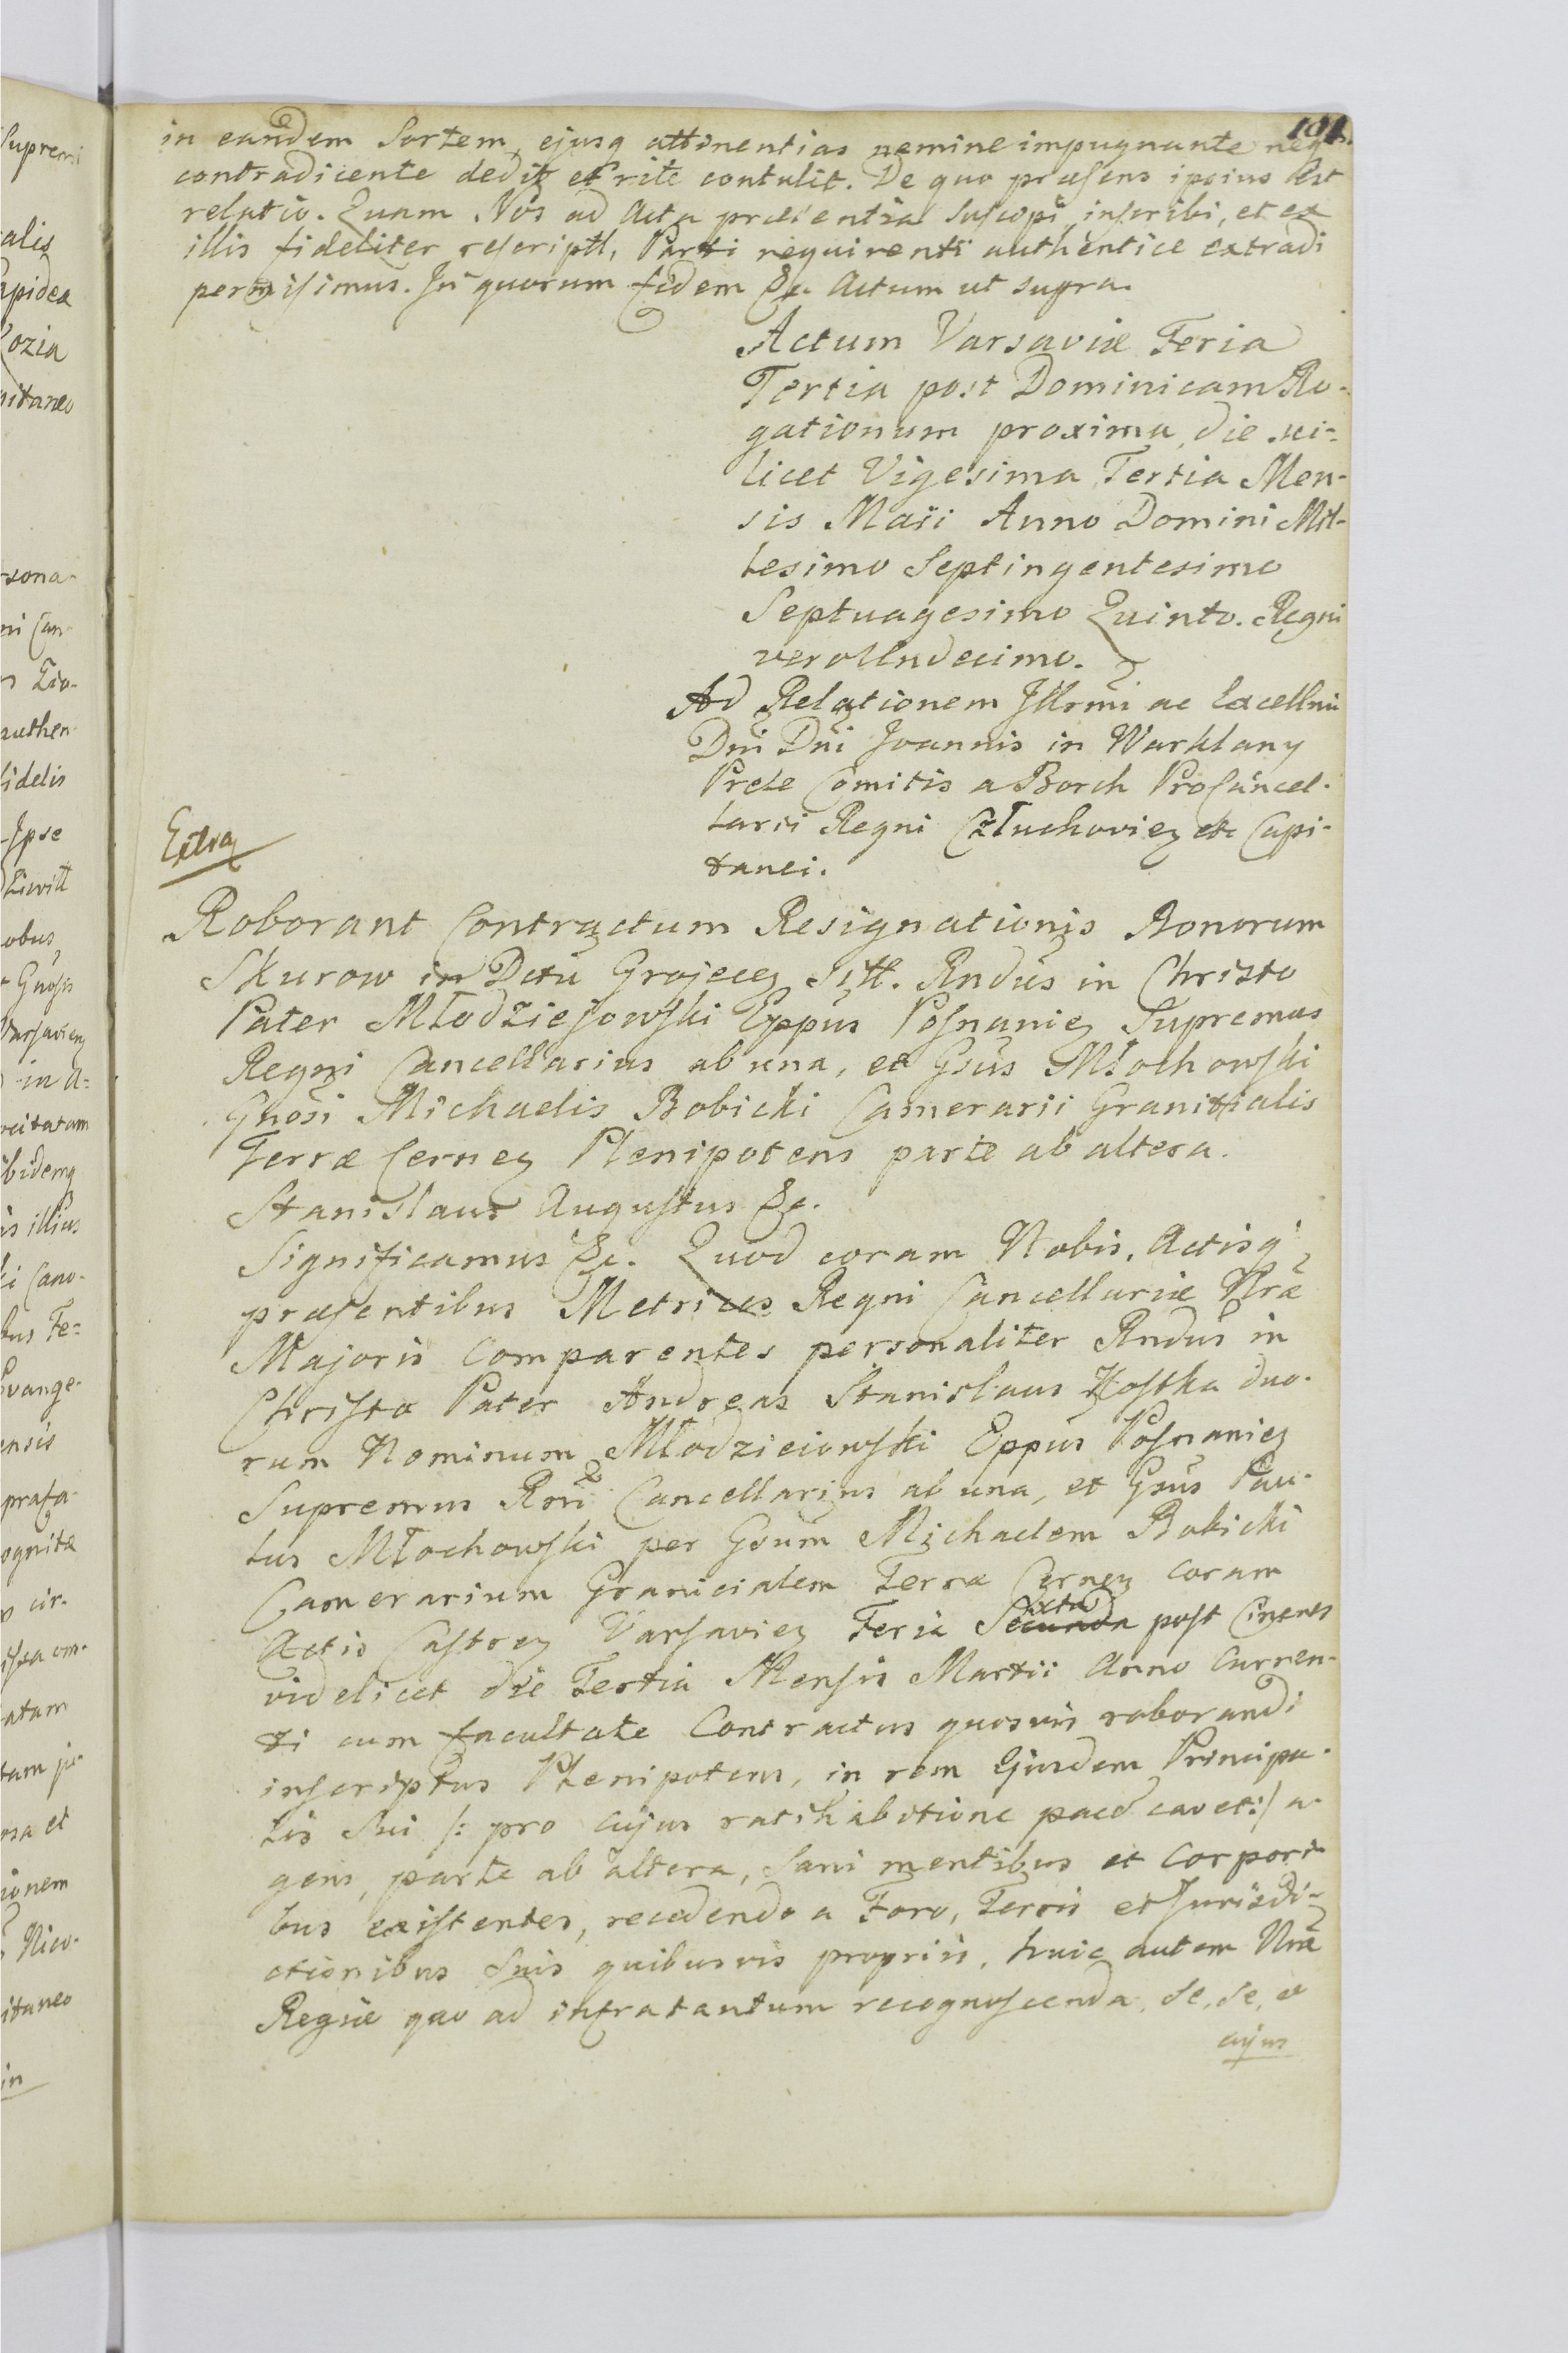 101.
in eandem Sortem, ejusq attinentias nemine impugnante neq
contradicente dedit et rite contulit. De quo præsens ipsius est
relatio. Quam Nos ad Acta præsentia suscipi, inscribi, et ex
illis fideliter rescriptt, Parti requirenti authentice extradi
permisimus. In quorum fidem &c. Actum ut supra.
Actum Varsaviæ Feria
Tertia post Dominicam Ro-
gationum proxima, die sci-
licet Vigesima Tertia Men-
sis Maii Anno Domini Mil-
lesimo Septingentesimo
Septuagesimo Quinto. Regni
vero Undecimo.
Ad Relationem Illrmi ac Excellmi
Dni Dni Joannis in Warklany
Prele Comitis a Borch ProCancel-
larii Regni Człuchovien etc Capi-
tanei.
Extra
Roborant Contractum Resignationis Bonorum
Skurow in Dctu Grojecen Sitt. Rndus in Christo
Pater Młodziejowski Eppus Posnanien Supremus
Regni Cancellarius ab una, et Gsus Młochowski
Gnosi Michaelis Bobicki Camerarii Granitialis
Terræ Cernen Plenipotens parte ab altera.
Stanislaus Augustus &c.
Significamus &c. Quod coram Nobis, Actisq
præsentibus Metrices Regni Cancellariæ Nræ
Majoris Comparentes personaliter Rndus in
Christo Pater Andreas Stanislaus Kostka duo-
rum Nominum Młodzieiowski Eppus Posnanien
Supremus Rni Cancellarius ab una, et Gsus Pau-
lus Młochowski per Gsum Michaelem Bobicki
Camerarium Granicialem Terræ Cernen coram
Actis Castren Varsavien Feria Secunda xta post Cineres
videlicet die Tertia Mensis Martii Anno Curren-
ti cum facultate Contractus quosvis roborandi
inscriptus Plenipotens, in rem Ejusdem Principa-
lis Sui /: pro cujus ratihabitione cavet :/ a-
gens, parte ab altera, Sani mentibus et Corpori-
bus existentes, recedendo a Foro, Terris et Jurisdi-
ctionibus Suis quibusvis propriis, huic autem Nræ
Regiæ quo ad infra tantum recognoscenda, se, se, et
cujus